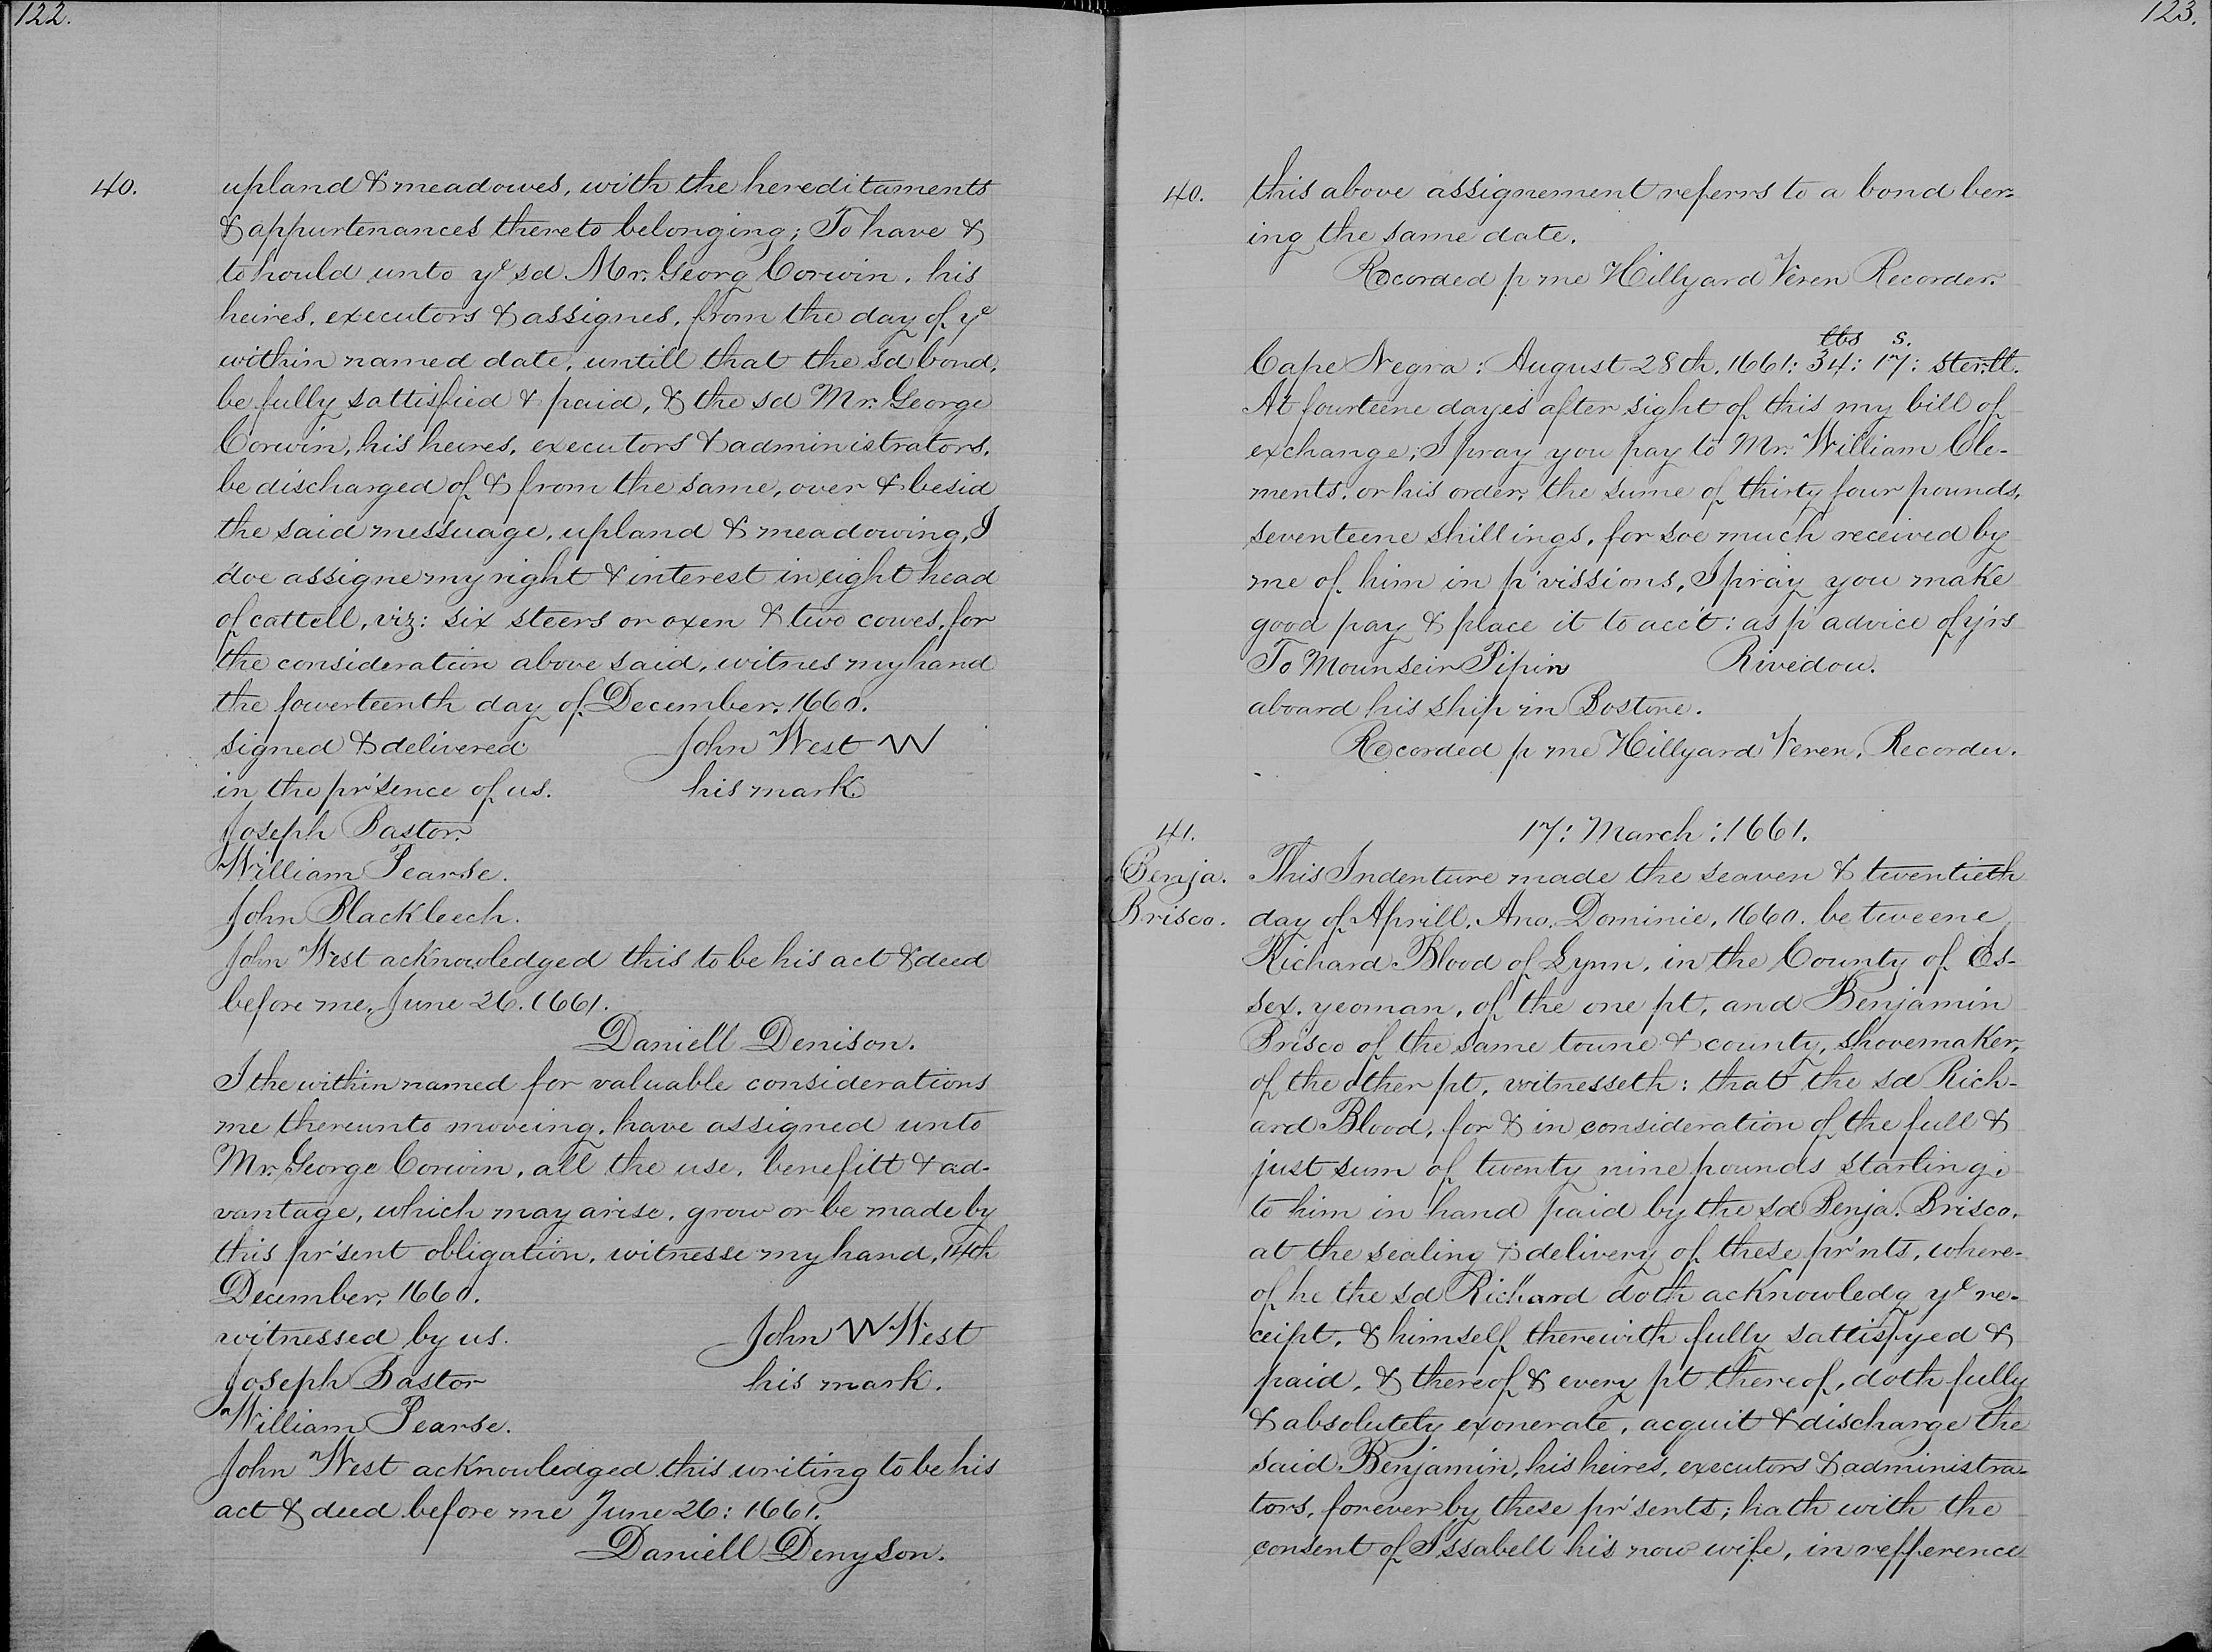 122.
40.
upland & meadowes, with the hereditaments
& appurtenances thereto belonging; To have &
to hould unto yᵉ sd Mr. Georg Corwin, his
heires, executors & assignes, from the day of yᵉ
within named date, untill that the sd bond,
be fully sattisfied & paid, & the sd Mr. George
Corwin, his heires, executors & administrators,
be discharged of & from the same, over & besid
the said messuage, upland & meadowing, I
doe assigne my right & interest in eight head
of cattell, viz: six steers or oxen & two cowes, for
the consideration above said, witnes my hand
the fowerteenth day of December, 1660.
signed & delivered John West W
in the pr'sence of us. his mark
Joseph Bastor.
William Pearse.
John Blackleech.
John West acknowledged this to be his act & deed
before me, June 26. 1661.
Daniell Denison.
I the within named for valuable considerations
me thereunto moveing, have assigned unto
Mr. George Corwin, all the use, benefitt & ad-
vantage, which may arise, grow or be made by
this pr'sent obligation, witnesse my hand, 14th
December, 1660.
witnessed by us. John W West
Joseph Bastor his mark.
William Pearse.
John West acknowledged this writing to be his
act & deed before me June 26: 1661.
Daniell Denyson.
123.
40.
this above assignement referrs to a bond ber-
ing the same date.
Recorded p me Hillyard Veren Recorder.
lbs s.
Cape Negra: August 28th. 1661: 34: 17: sterll.
At fourteene dayes after sight of this my bill of
exchange; I pray you pay to Mr. William Cle-
ments, or his order, the sume of thirty four pounds,
seventeene shillings, for soe much received by
me of him in p'vissions, I pray you make
good pay & place it to acc't: as p advice of y'rs
To Mounseir Pipin Rivedou.
aboard his ship in Bostone.
Recorded p me Hillyard Veren, Recorder.
41.
17: March: 1661.
Benja.
Brisco.
This Indenture made the seaven & twentieth
day of Aprill, Ano. Dominie, 1660. betweene
Richard Blood of Lynn, in the County of Es-
sex, yeoman, of the one pt, and Benjamin
Brisco of the same towne & county, shovemaker,
of the other pt, witnesseth: that the sd Rich-
ard Blood, for & in consideration of the full &
just sum of twenty nine pounds starling;
to him in hand paid by the sd Benja. Brisco,
at the sealing & delivery of these pr'nts, where-
of he the sd Richard doth acknowledg yᵉ re-
ceipt, & himself therewith fully sattisfyed &
paid, & thereof & every pt thereof, doth fully
& absolutely exonerate, acquit & discharge the
said Benjamin, his heires, executors & administra-
tors, forever by these pr'sents; hath with the
consent of Issabell his now wife, in refference